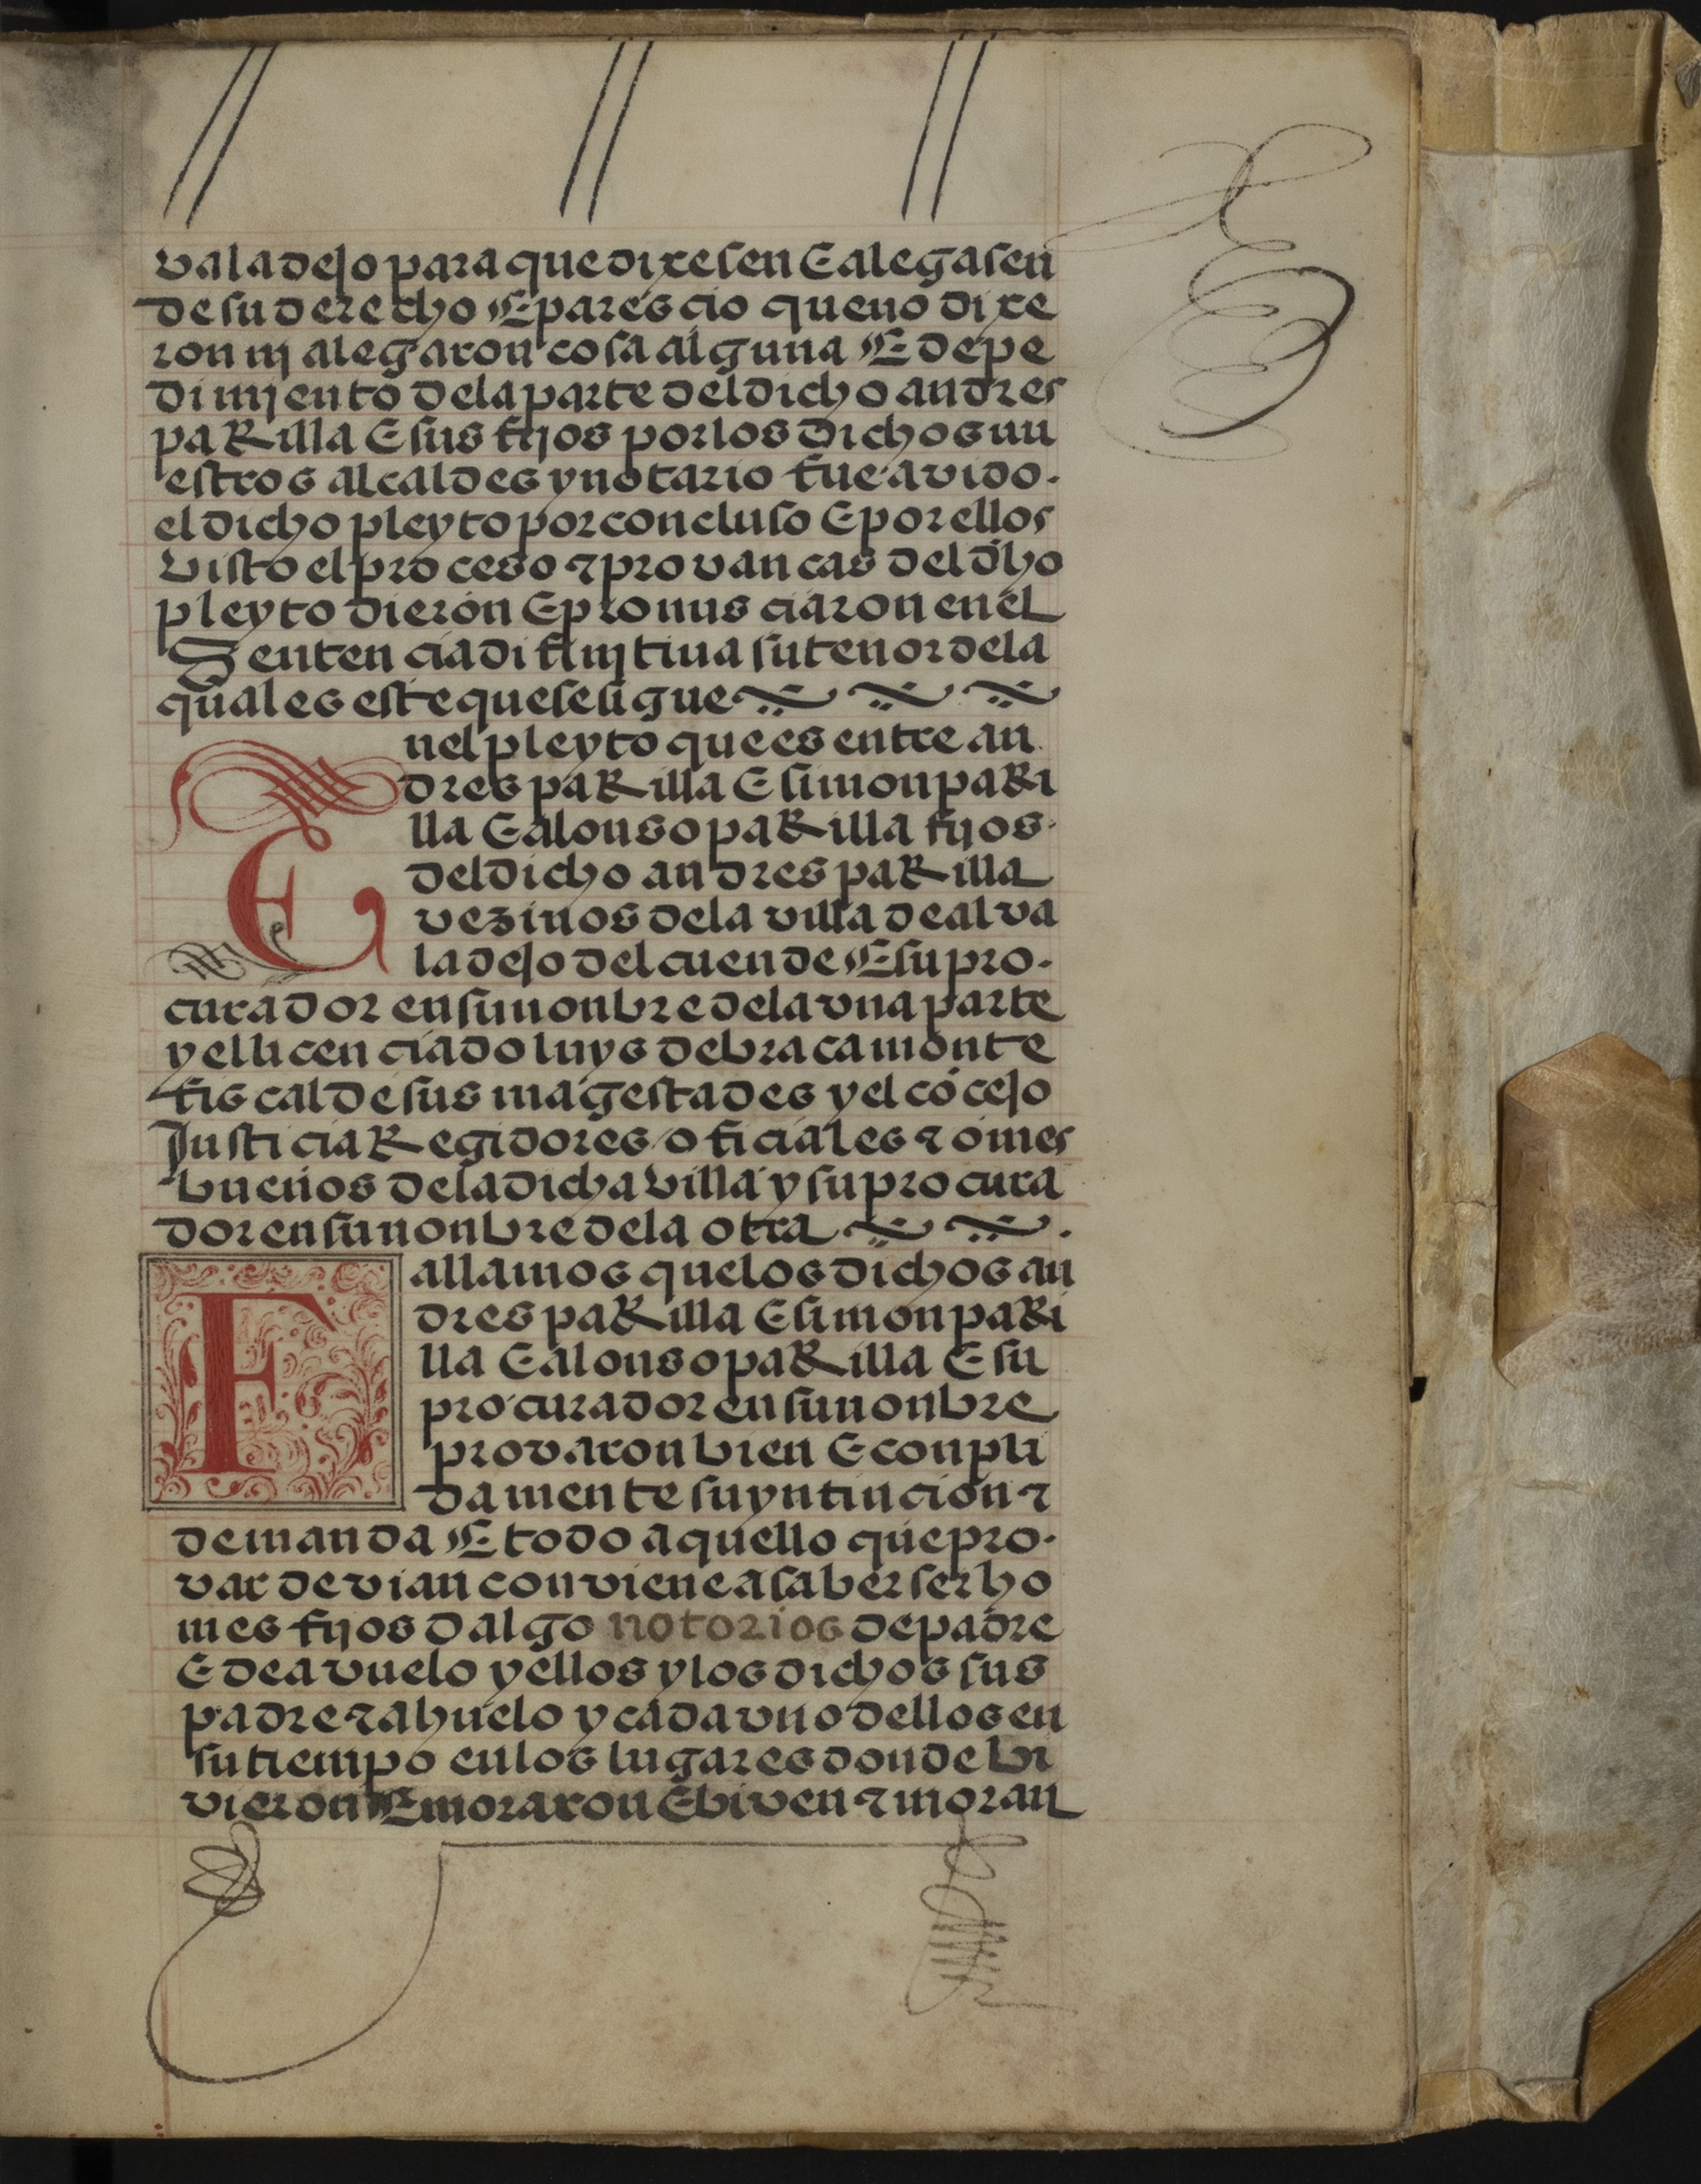 valadejo para que dixesen E alegasen
de su derecho E parescio que no dixe
ron nj alegaron cosa alguna E de pe
dimjento dela parte del dicho andres
paRilla E sus fijos por los dichos nu
estros alcaldes y notario fue avido.
el dicho pleyto por concluso E por ellos
visto el proceso ⁊ provancas del dho
pleyto dieron E pronusciaron en el
Sentencia difinjtiua su tenor dela
qual es este que se sigue
Enel pleyto que es entre an
dres paRilla E simon paRi
lla E alonso paRilla fijos.
del dicho andres paRilla
vezinos dela villa de alva
ladejo del cuende E su pro.
curador en su nonbre dela vna parte
y el licenciado luys de bracamonte
fiscal de sus magestades y el cõcejo
Justicia Regidores oficiales ⁊ omes
buenos dela dicha villa y su procura
dor en su nonbre dela otra
Fallamos que los dichos an
dres paRilla E simon paRi
lla E alonso paRilla E su
procurador en su nonbre
provaron bien E conpli
damente su yntincion ⁊
demanda E todo aquello que pro.
var devian conviene a saber ser ho
mes fijos dalgo notorios de padre
E de avuelo y ellos y los dichos sus
padre ⁊ ahuelo y cada vno dellos en
su tiempo en los lugares donde bi
vieron E moraron E biven ⁊ moran